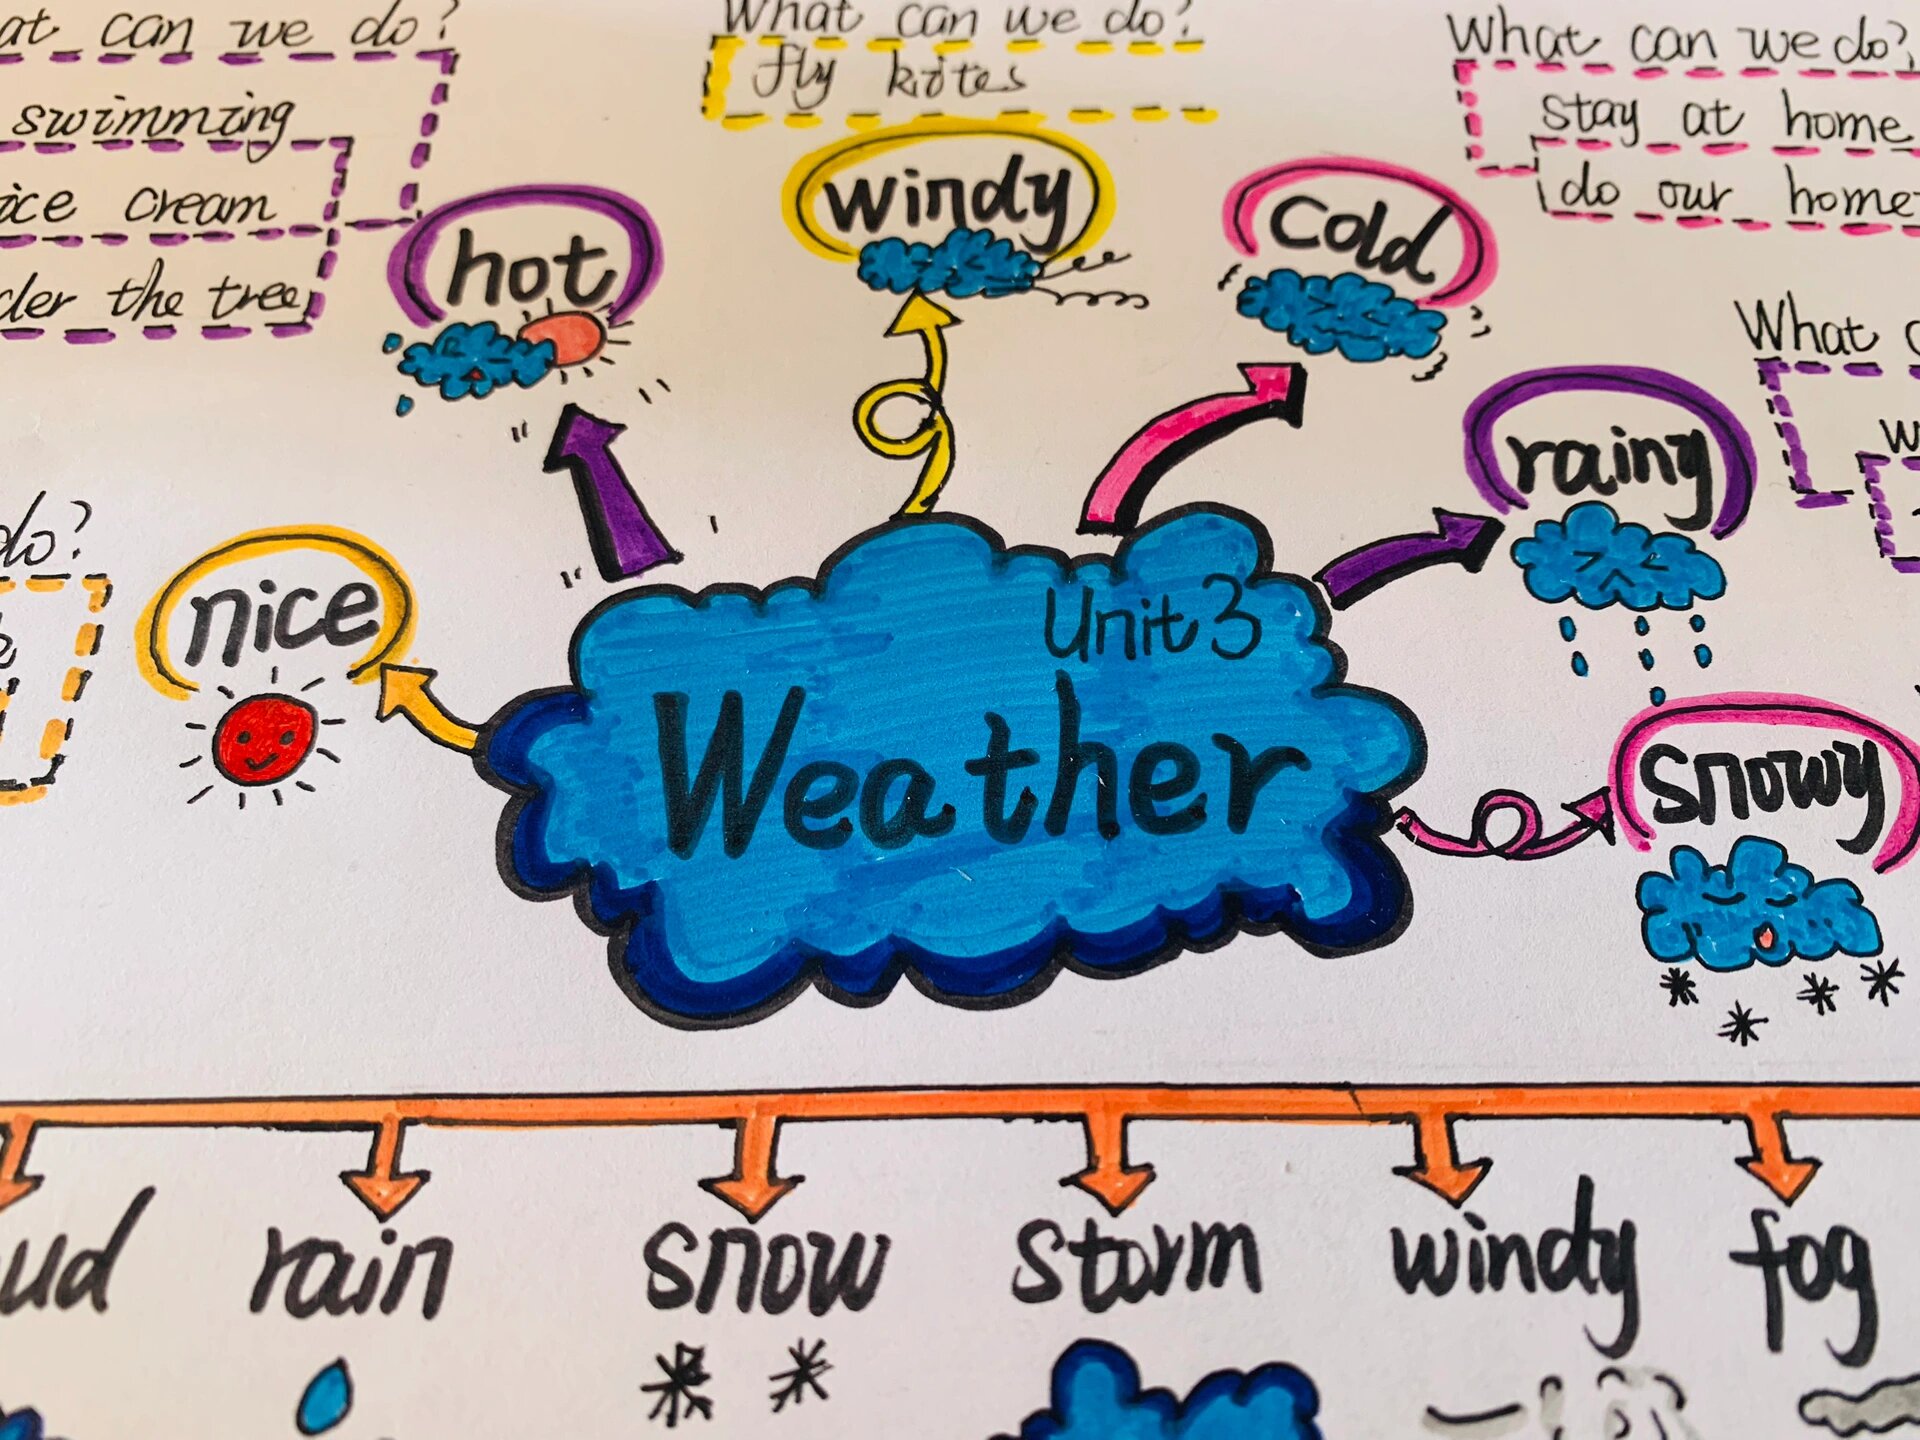 can we do?
swimming
ice cream
the tree
hot
What can we do?
fly kites
windy
What can we do?
stay at home
do our home
cold
What
rainy
do?
nice
Unit 3
Weather
snowy
rain
snow
storm
windy
fog